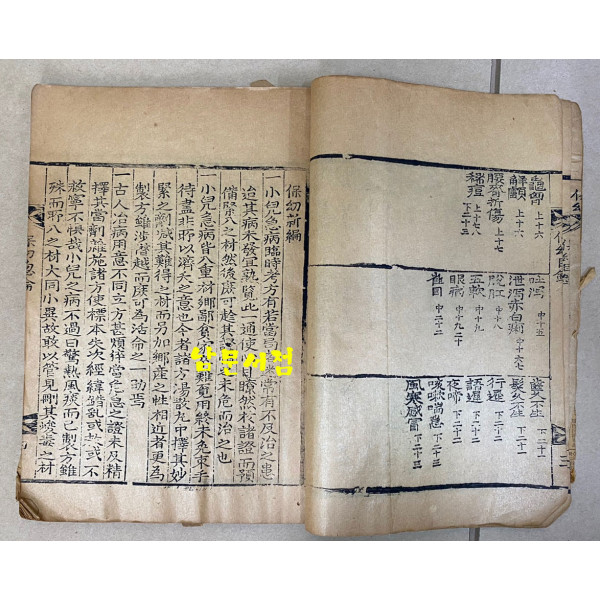 龜胸 上十六
解顱 上十六
折傷 上十七
稀痘 下二十三
吐瀉 中十五
泄瀉赤白痢 中十六七
脫肛 中十八
五軟 中十九
眼病 中十九二十
雀目 中二十二
齒久不生 下二十一
髮久不生 下二十一
行遲 下二十一
語遲 下二十二
夜啼 下二十二
咳嗽喘急 下二十三
風寒感冒 下二十三
保幼新編
一小兒急病臨時考方有若當局 常有不及治之患
治其病未發宜熟覽此一通使 目瞭然於諸證而預
備緊入之材然後庶可趁其 未危而治之也
一小兒急病皆入重材鄉鄙貧家 難覓用終未免束手
待盡非所以濟衆之意也今者諸方湯散丸中擇其妙
緊之劑減其難得之材而另加鄉產之性相近者更爲
製方雖涉僭越而庶可爲活命之一助焉
一古人治病用意不同立方甚煩 當危急之證未及精
擇其當劑 施諸方使標本失次經緯錯亂或 不
救寧不悞哉小兒之病不過曰驚熱風痰而已製方雖
殊而所入之材大同小異故敢以管見刪其峻毒之材
남문서점